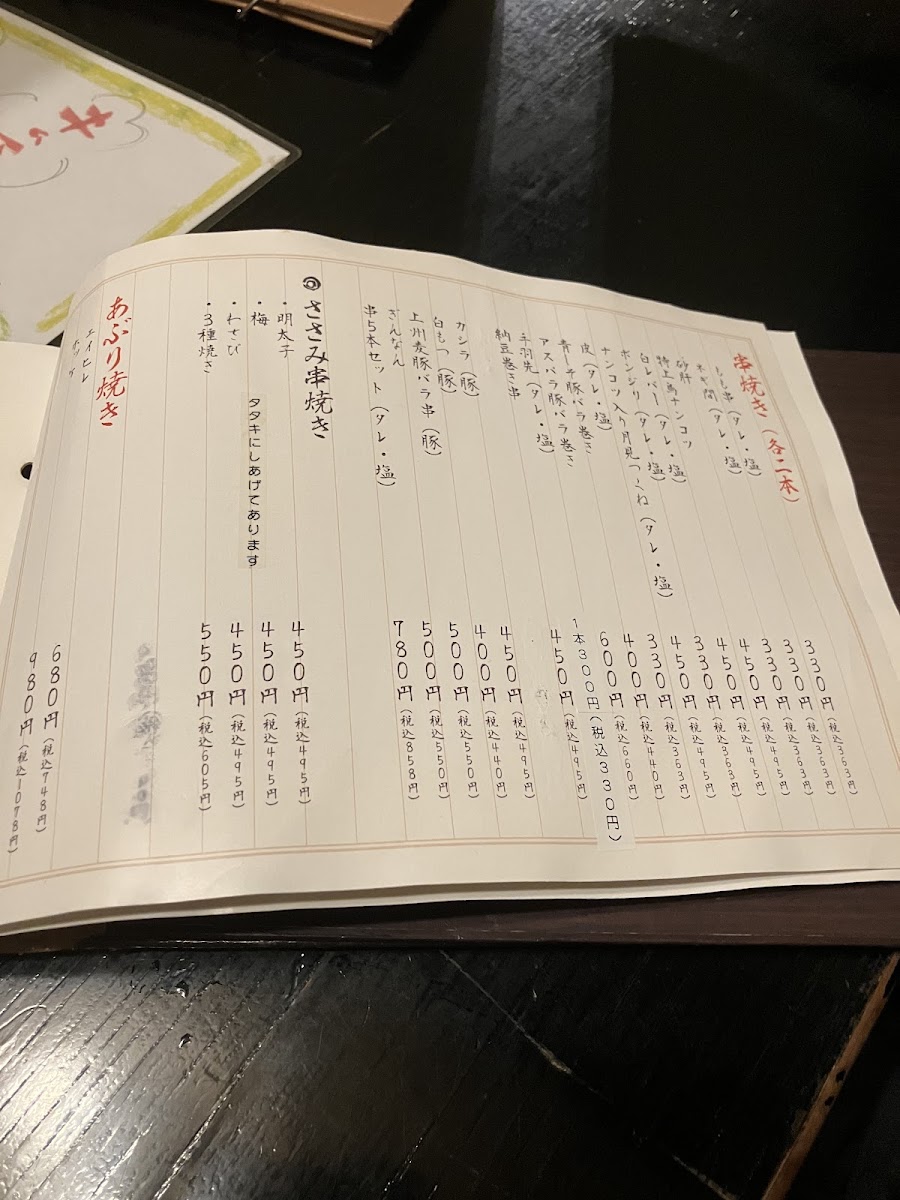 串焼き(各二本)
もも串(タレ・塩) 330円(税込363円)
ネギ間(タレ・塩) 330円(税込363円)
砂肝 330円(税込363円)
特上馬ナンコツ 450円(税込495円)
白レバー(タレ・塩) 450円(税込495円)
ボンジリ(タレ・塩) 330円(税込363円)
ナンコツ入り月見つくね(タレ・塩) 450円(税込495円)
皮(タレ・塩) 330円(税込363円)
青ジソ豚バラ巻き 400円(税込440円)
アスパラ豚バラ巻き 600円(税込660円)
手羽先(タレ・塩) 1本300円(税込330円)
納豆巻き串 450円(税込495円)
カシラ(豚) 450円(税込495円)
白もつ(豚) 400円(税込440円)
上州麦豚バラ串(豚) 500円(税込550円)
ぎんなん 500円(税込550円)
串5本セット(タレ・塩) 780円(税込858円)
ささみ串焼き
・明太子 450円(税込495円)
・梅 450円(税込495円)
タタキにしあげてあります
・わさび 450円(税込495円)
・3種焼き 550円(税込605円)
あぶり焼き
エイヒレ 680円(税込748円)
ホッケ 980円(税込1078円)